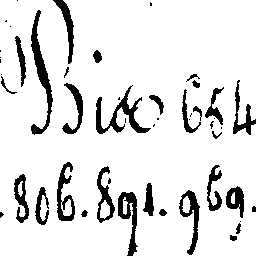 Bix 654
.806.891.969.